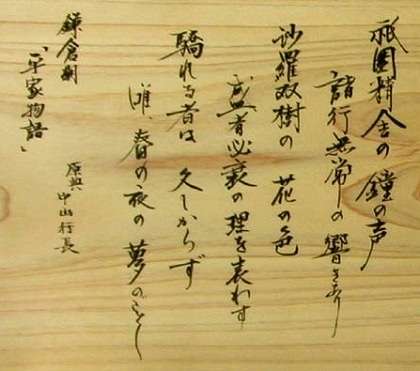 祇園精舎の鐘の声
諸行無常の響きあり
沙羅双樹の花の色
盛者必衰の理を表わす
驕れる者は久しからず
唯、春の夜の夢の如し
鎌倉期
「平家物語」
原典 中山行長